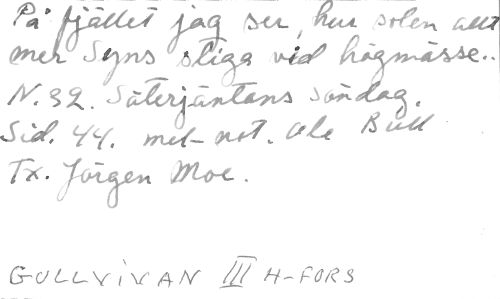 På fjället jag ser, hur solen allt
mer Syns stiga vid högmässe..
N. 32. Säterjäntans söndag.
Sid. 44. mel-not. Ole Bull
Tx. Jörgen Moe.
GULLVIVAN III H-FORS